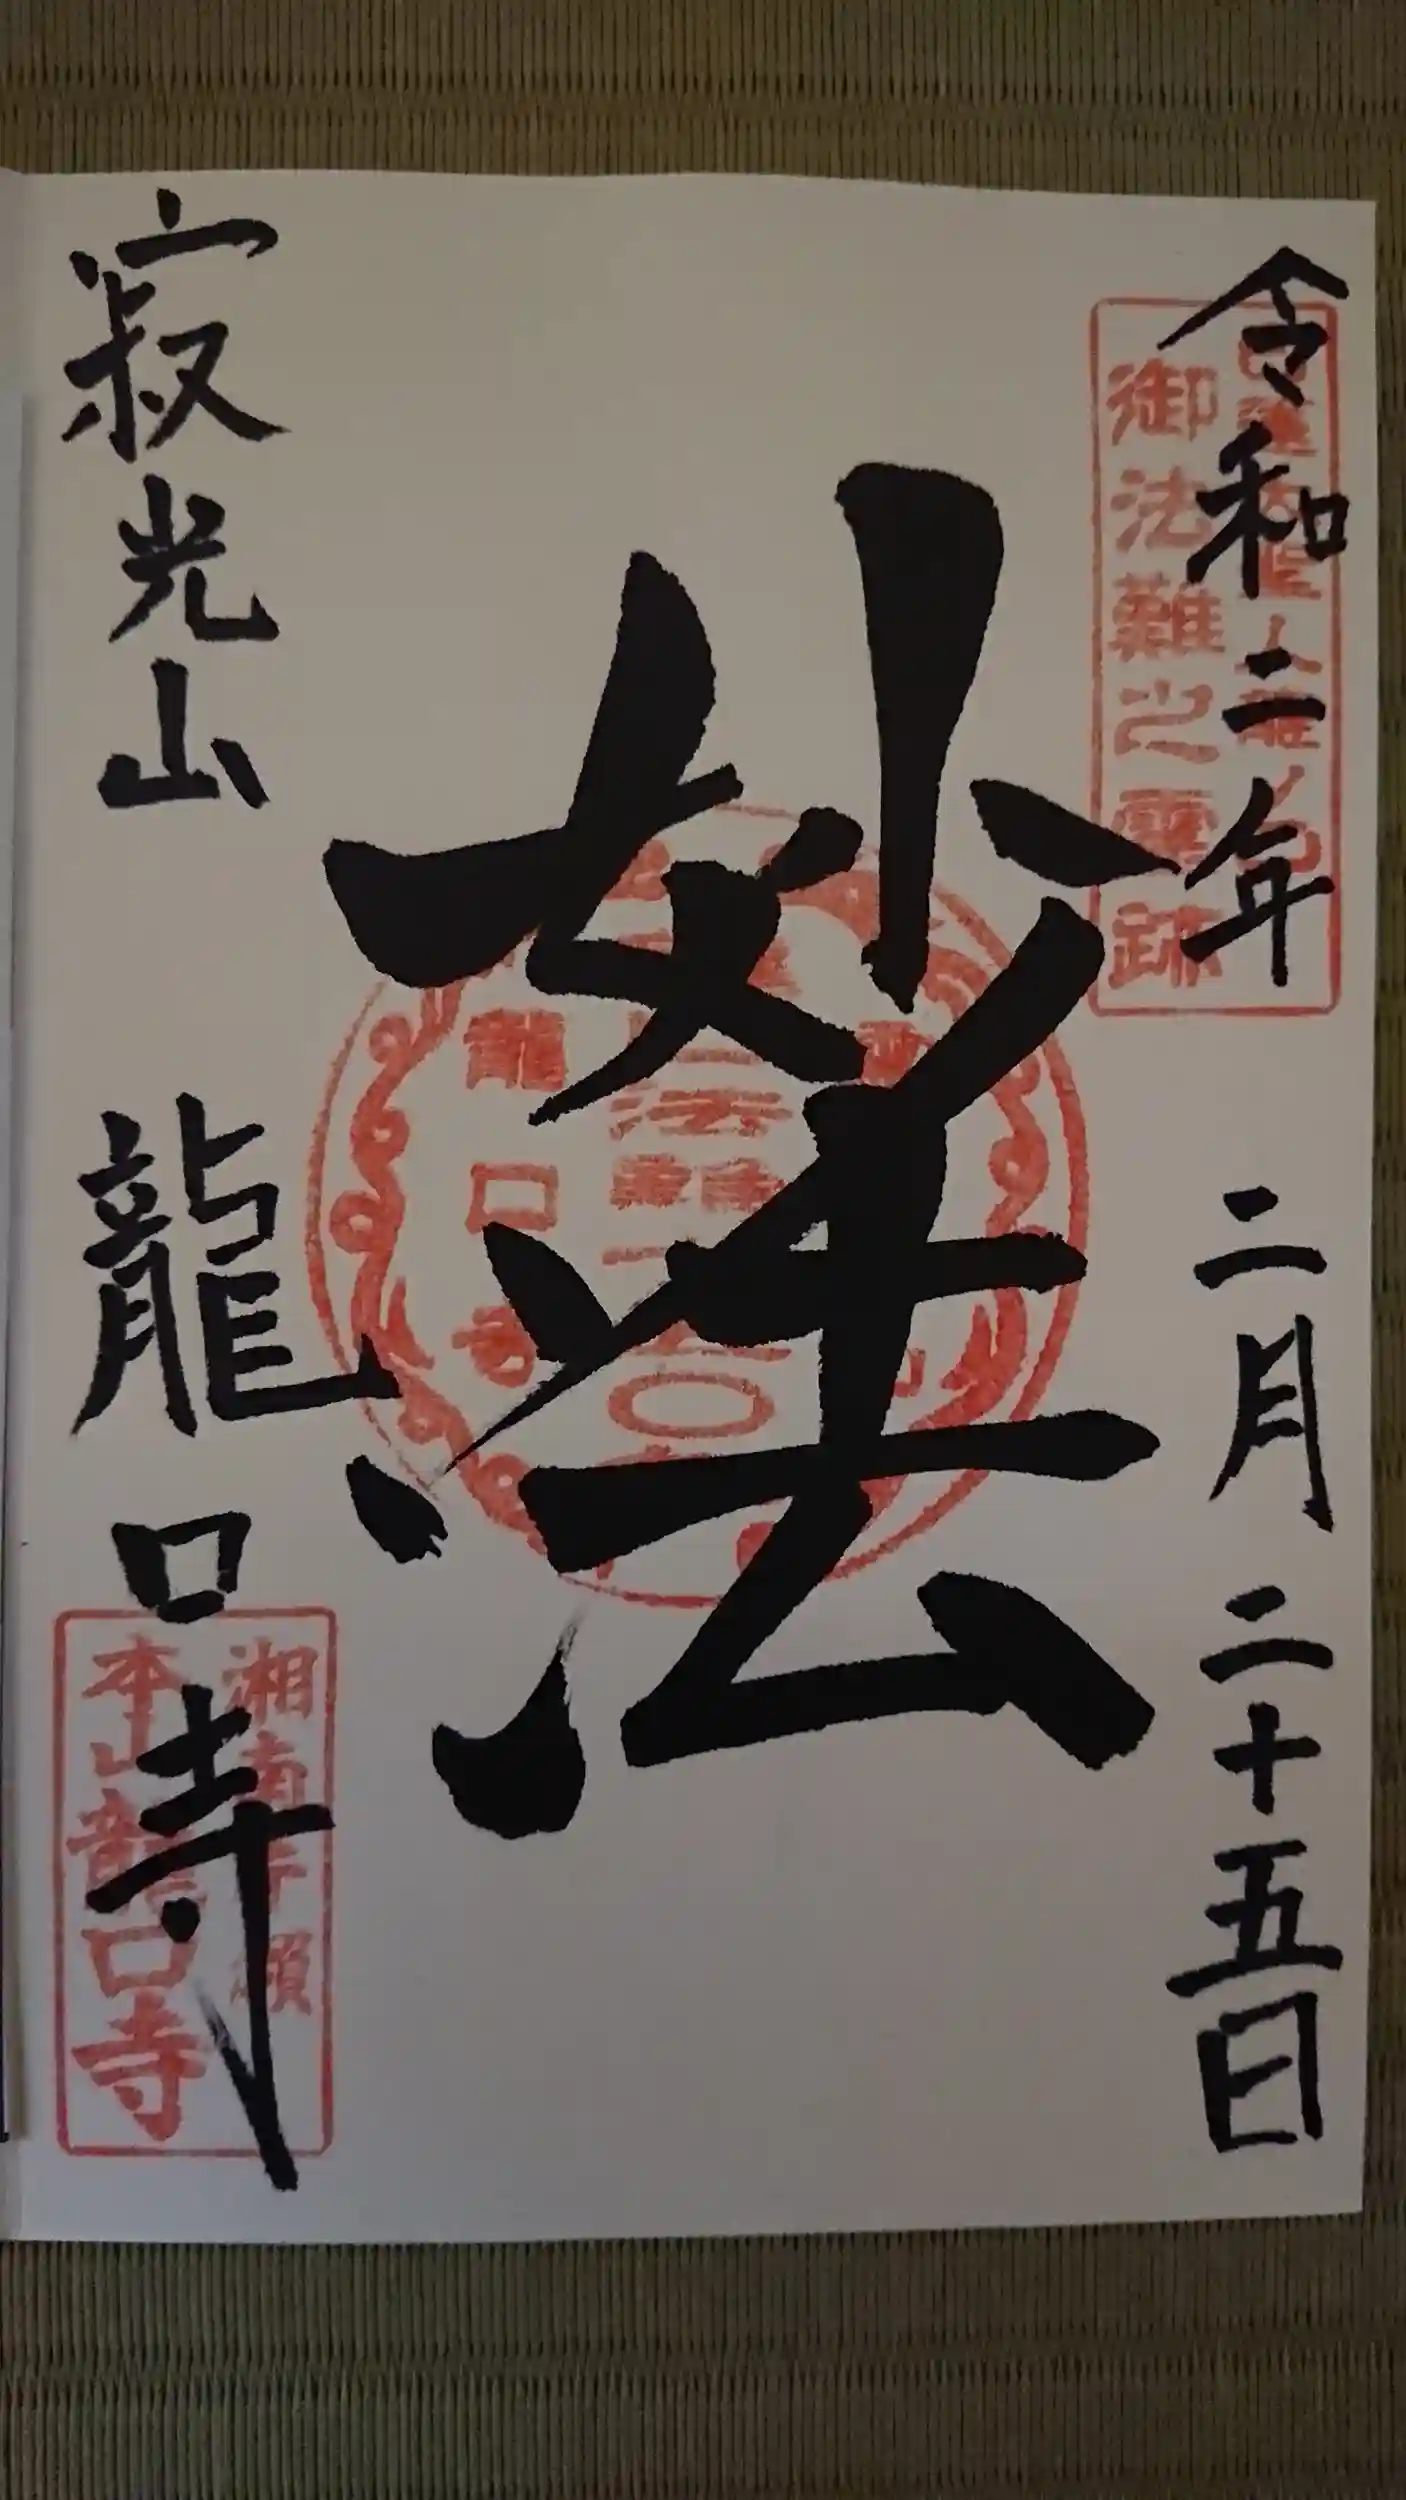 令和二年 二月二十五日
御法難之霊跡
妙法
龍口寺
寂光山 龍口寺
本山龍口寺